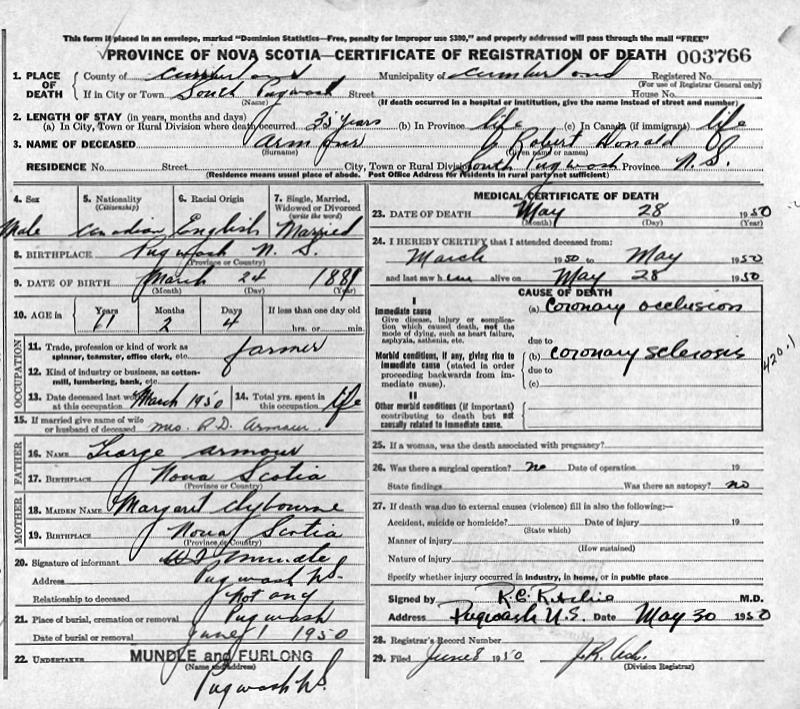 This form may be enclosed in an envelope, marked "Dominion Statistics—Free, penalty for improper use $300," and properly addressed will pass through the mail "FREE"
PROVINCE OF NOVA SCOTIA—CERTIFICATE OF REGISTRATION OF DEATH 003766
1. PLACE OF DEATH
County of Cumberland Municipality of Cumberland Registered No.
(For use of Registrar General only)
If in City or Town South Pugwash Street House No.
(Name) (If death occurred in a hospital or institution, give the name instead of street and number)
2. LENGTH OF STAY (in years, months and days)
(a) In City, Town or Rural Division where death occurred 35 years (b) In Province life (c) In Canada (if immigrant) life
3. NAME OF DECEASED Armour Robert Donald
(Surname) (Given name or names)
RESIDENCE No. Street City, Town or Rural Division South Pugwash Province N.S.
(Residence means usual place of abode. Post Office Address for residents in rural parts not sufficient)
4. Sex Male
5. Nationality (Citizenship) Canadian
6. Racial Origin English
7. Single, Married, Widowed or Divorced (write the word) Married
8. BIRTHPLACE Pugwash N. S.
(Province or Country)
9. DATE OF BIRTH March 24 1889
(Month) (Day) (Year)
10. AGE in Years 61 Months 2 Days 4 If less than one day old
hrs. or min.
OCCUPATION
11. Trade, profession or kind of work as spinner, teamster, office clerk, etc. farmer
12. Kind of industry or business, as cotton-mill, lumbering, bank, etc.
13. Date deceased last worked at this occupation March 1950
14. Total yrs. spent in this occupation life
15. If married give name of wife or husband of deceased Mrs. R.D. Armour
FATHER
16. Name George Armour
17. Birthplace Nova Scotia
(Province or Country)
MOTHER
18. MAIDEN NAME Margaret Clybourne
19. BIRTHPLACE Nova Scotia
(Province or Country)
20. Signature of informant Mundle
Address Pugwash NS.
Relationship to deceased Not any
21. Place of burial, cremation or removal Pugwash
Date of burial or removal June 1 1950
22. UNDERTAKER MUNDLE and FURLONG
(Name and address)
Pugwash NS.
MEDICAL CERTIFICATE OF DEATH
23. DATE OF DEATH May 28 1950
(Month) (Day) (Year)
24. I HEREBY CERTIFY that I attended deceased from:
March 1950 to May 1950
and last saw him alive on May 28 1950
CAUSE OF DEATH
I
Immediate cause (a) Coronary occlusion
Give disease, injury or complication which caused death, not the mode of dying, such as heart failure, asphyxia, asthenia, etc.
due to
Morbid conditions, if any, giving rise to immediate cause (stated in order proceeding backwards from immediate cause). (b) coronary sclerosis
due to
(c)
420.1
II
Other morbid conditions (if important) contributing to death but not causally related to immediate cause.
25. If a woman, was the death associated with pregnancy?
26. Was there a surgical operation? no Date of operation 19
State findings Was there an autopsy? no
27. If death was due to external causes (violence) fill in also the following:—
Accident, suicide or homicide? Date of injury 19
(State which)
Manner of injury
(How sustained)
Nature of injury
Specify whether injury occurred in industry, in home, or in public place
Signed by R.C. Ritchie M.D.
Address Pugwash N.S. Date May 30 1950
28. Registrar's Record Number
29. Filed June 8 1950
(Division Registrar)